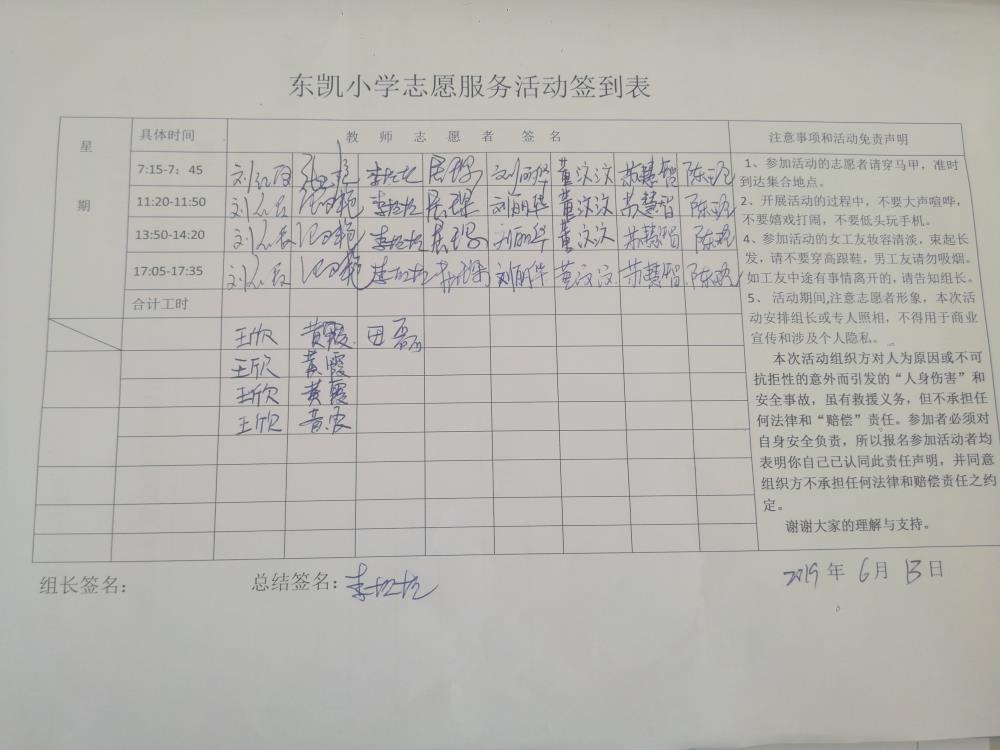 东凯小学志愿服务活动签到表
星期
具体时间
教 师 志 愿 者 签 名
注意事项和活动免责声明
7:15-7：45 刘丽华 董汶汶 苏慧智
11:20-11:50 刘丽华 董汶汶 苏慧智
13:50-14:20 刘丽华 董汶汶 苏慧智
17:05-17:35 刘丽华 董汶汶 苏慧智
合计工时
王欣 黄霞 田磊
王欣 黄霞
王欣 黄霞
王欣 黄霞
1、参加活动的志愿者请穿马甲，准时
到达集合地点。
2、开展活动的过程中，不要大声喧哗，
不要嬉戏打闹，不要低头玩手机。
4、参加活动的女工友妆容清淡，束起长
发，请不要穿高跟鞋，男工友请勿吸烟。
如工友中途有事情离开的，请告知组长。
5、 活动期间,注意志愿者形象，本次活
动安排组长或专人照相，不得用于商业
宣传和涉及个人隐私。
本次活动组织方对人为原因或不可
抗拒性的意外而引发的“人身伤害”和
安全事故，虽有救援义务，但不承担任
何法律和“赔偿”责任。参加者必须对
自身安全负责，所以报名参加活动者均
表明你自己已认同此责任声明，并同意
组织方不承担任何法律和赔偿责任之约
定。
谢谢大家的理解与支持。
组长签名：
总结签名：
2019 年 6 月 13 日